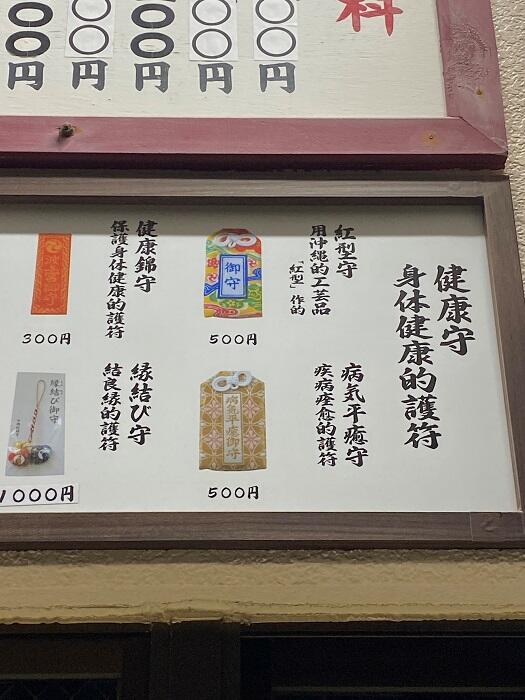 料
〇〇円
〇〇円
〇〇円
〇〇円
〇〇円
健康守
身体健康的護符
紅型守
用沖縄的工芸品
「紅型」作的
御守
500円
病気平癒守
疾病痊愈的護符
病気平癒御守
500円
健康錦守
保護身体健康的護符
波宮錦守
300円
縁結び守
結良縁的護符
縁結び御守
1000円